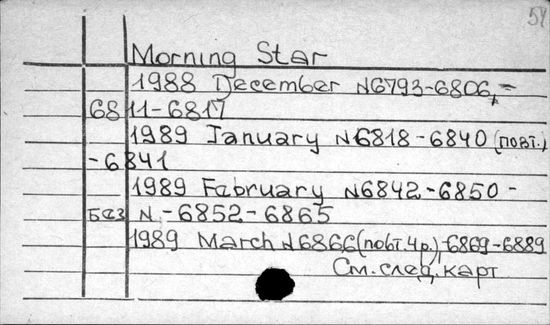 54
Morning Star
1988 December N6793-6806,-
6811-6817
1989 January N6818-6840 (повт.)
-6841
1989 Fabruary N6842-6850-
без N.-6852-6865
1989 March N6866(повт.4р.),-6869-6889
См.след.карт